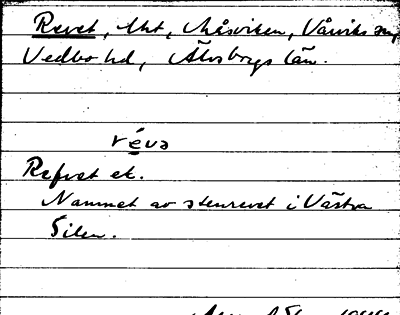 Revet, Uht, Måsviken, Vårviks sn,
Vedbo hd, Älvsborgs län.
réva
Refvet ek.
Namnet av stenrevet i Västra
Silen.